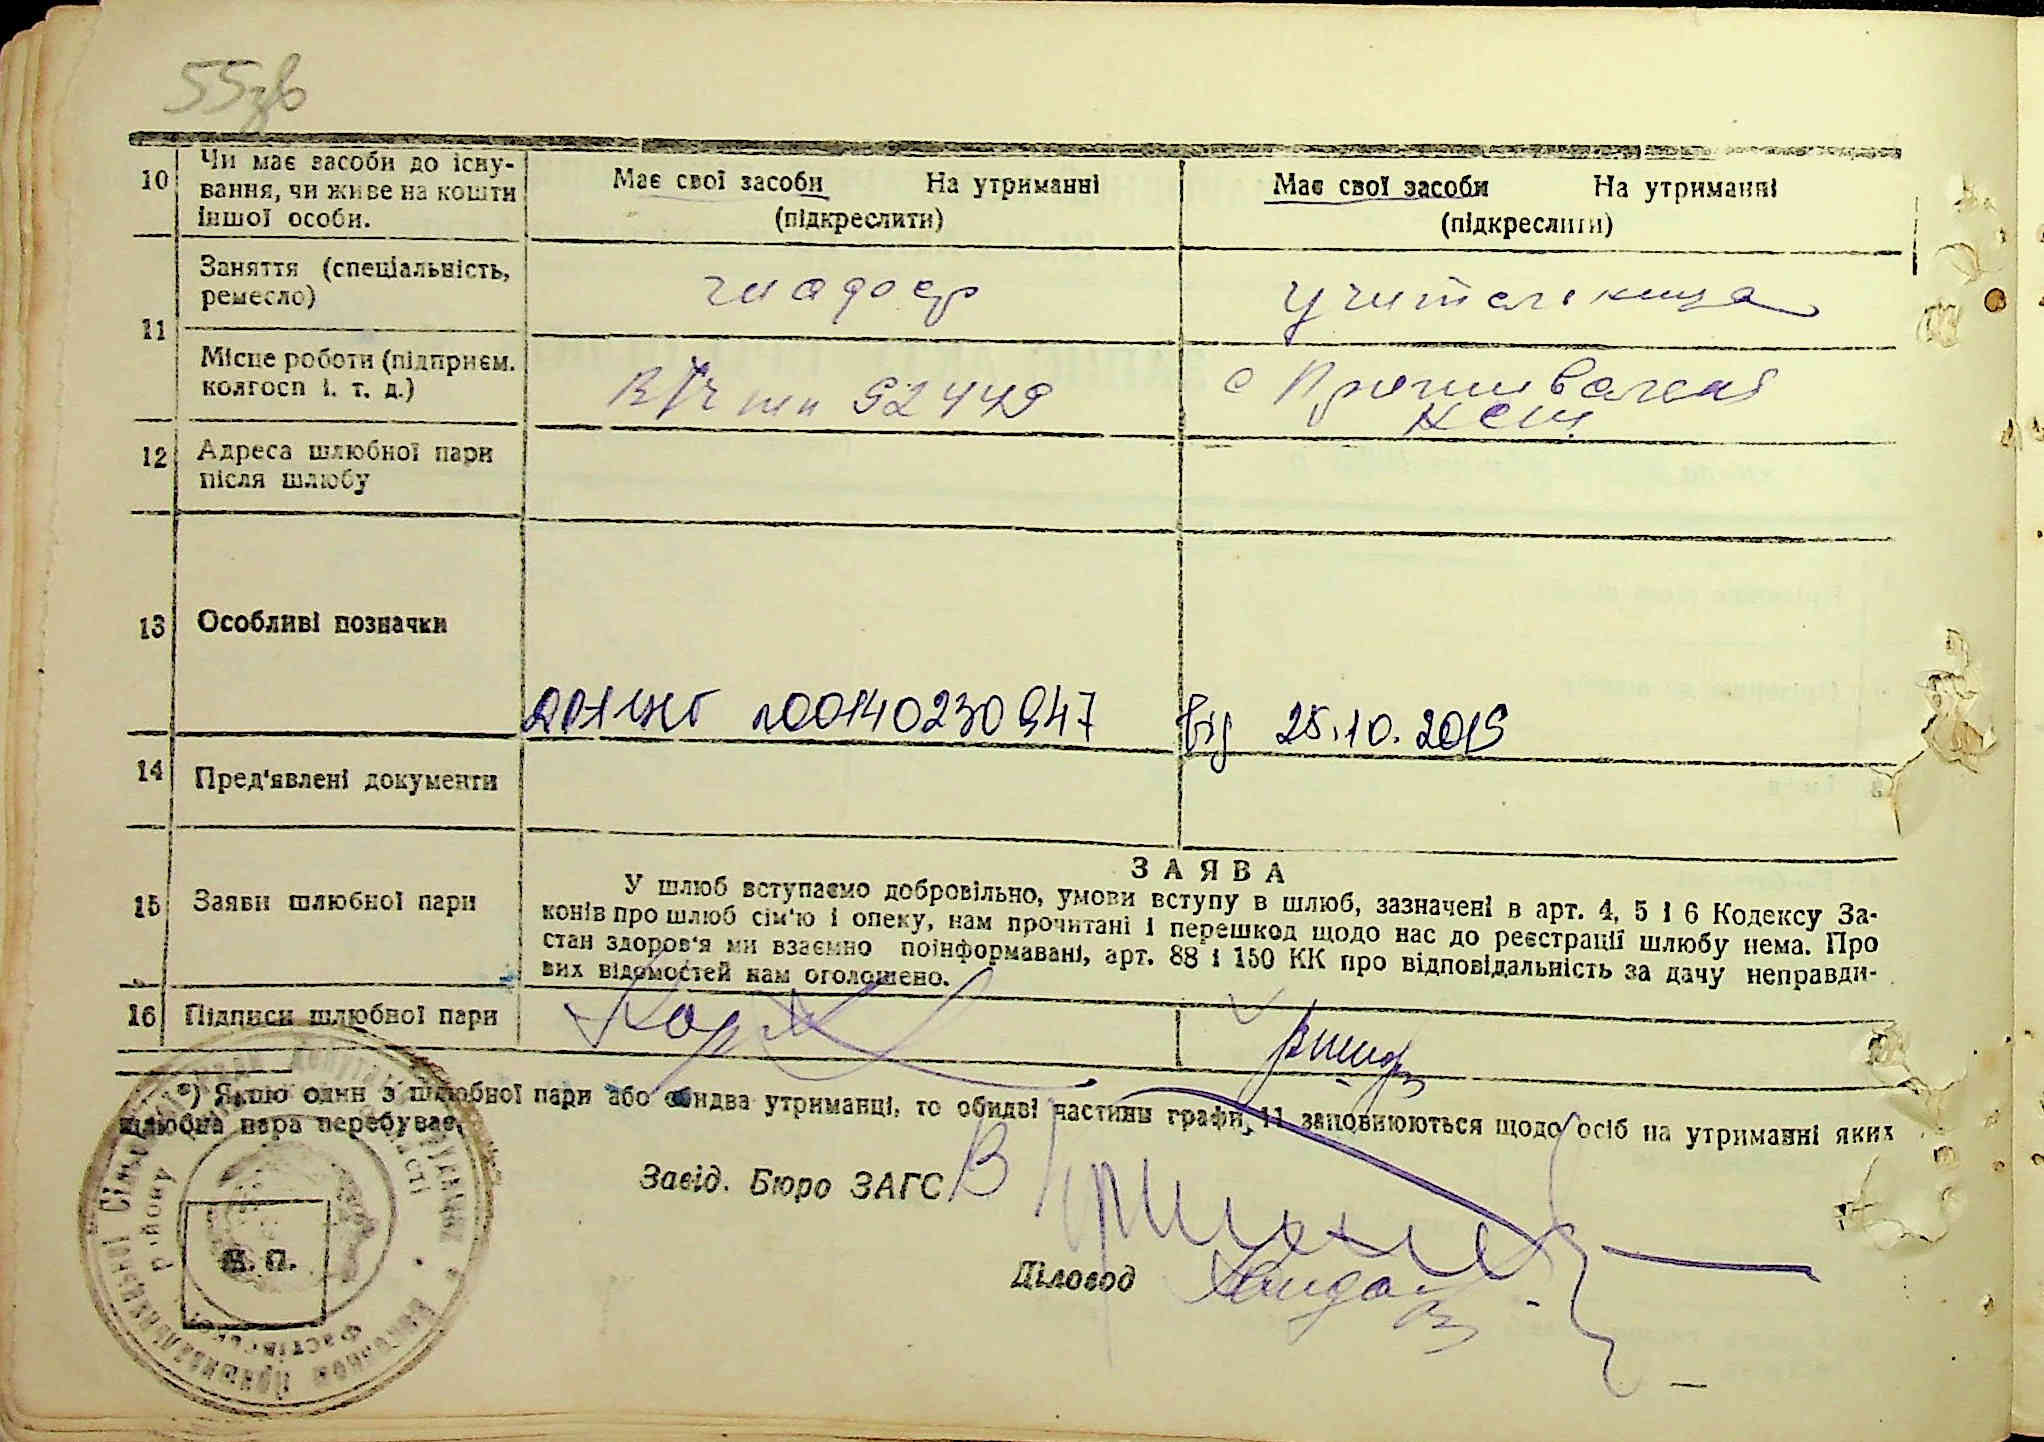 55зв
10 Чи має засоби до існу-
вання, чи живе на кошти
іншої особи.
Має свої засоби На утриманні
(підкреслити)
Має свої засоби На утриманні
(підкреслити)
11 Заняття (спеціальність,
ремесло)
учителька
Місце роботи (підприєм.
колгосп і. т. д.)
с
12 Адреса шлюбної пари
після шлюбу
13 Особливі позначки
ДРАЦСГ №00140230947 від 25.10.2019
14 Пред'явлені документи
15 Заяви шлюбної пари
ЗАЯВА
У шлюб вступаємо добровільно, умови вступу в шлюб, зазначені в арт. 4, 5 і 6 Кодексу За-
конів про шлюб сім'ю і опеку, нам прочитані і перешкод щодо нас до реєстрації шлюбу нема. Про
стан здоров'я ми взаємно поінформавані, арт. 88 і 150 КК про відповідальність за дачу неправди-
вих відомостей нам оголошено.
16 Підписи шлюбної пари
*) Якщо один з шлюбної пари або обидва утриманці, то обидві частини графи 11 заповнюються щодо осіб на утриманні яких
шлюбна пара перебуває.
Завід. Бюро ЗАГС
Діловод
М. П.